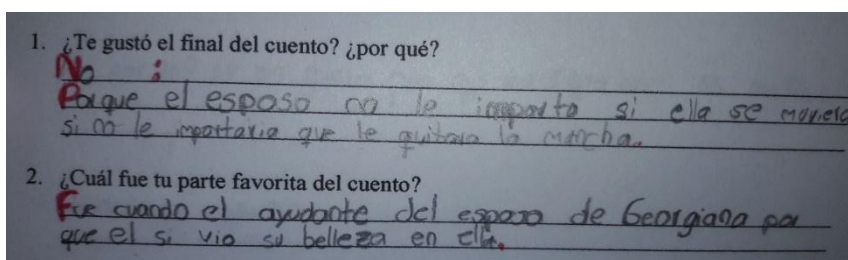 1. ¿Te gustó el final del cuento? ¿por qué?
No :
Porque el esposo no le importo si ella se moriera
si no le importaria que le quitara la mancha.
2. ¿Cuál fue tu parte favorita del cuento?
Fue cuando el ayudante del esposo de Georgiana por
que el si vio su belleza en ella.